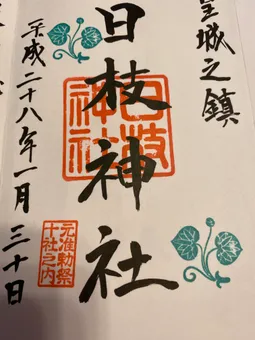 皇城之鎮
日枝神社
日枝神社
平成二十八年一月三十日
元准勅祭
十社之内